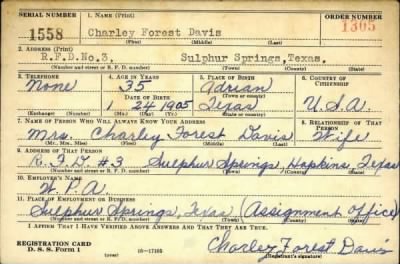 SERIAL NUMBER 1. NAME (Print) ORDER NUMBER
1558 Charley Forest Davis 1305
(First) (Middle) (Last)
2. ADDRESS (Print)
R.F.D.No.3, Sulphur Springs,Texas.
(Number and street or R. F. D. number) (Town) (County) (State)
3. TELEPHONE 4. AGE IN YEARS 5. PLACE OF BIRTH 6. COUNTRY OF CITIZENSHIP
None 35 Adrian
DATE OF BIRTH (Town or county)
1 24 1905 Texas U.S.A.
(Exchange) (Number) (Mo.) (Day) (Yr.) (State or country)
7. NAME OF PERSON WHO WILL ALWAYS KNOW YOUR ADDRESS 8. RELATIONSHIP OF THAT PERSON
Mrs. Charley Forest Davis Wife
(Mr., Mrs., Miss) (First) (Middle) (Last)
9. ADDRESS OF THAT PERSON
R.F.D. #3 Sulphur Springs, Hopkins, Texas
(Number and street or R. F. D. number) (Town) (County) (State)
10. EMPLOYER'S NAME
W.P.A.
11. PLACE OF EMPLOYMENT OR BUSINESS
Sulphur Springs, Texas (Assignment Office)
(Number and street or R. F. D. number) (Town) (County) (State)
I AFFIRM THAT I HAVE VERIFIED ABOVE ANSWERS AND THAT THEY ARE TRUE.
REGISTRATION CARD Charley Forest Davis
D. S. S. Form 1 16—17105 (Registrant's signature)
(over)